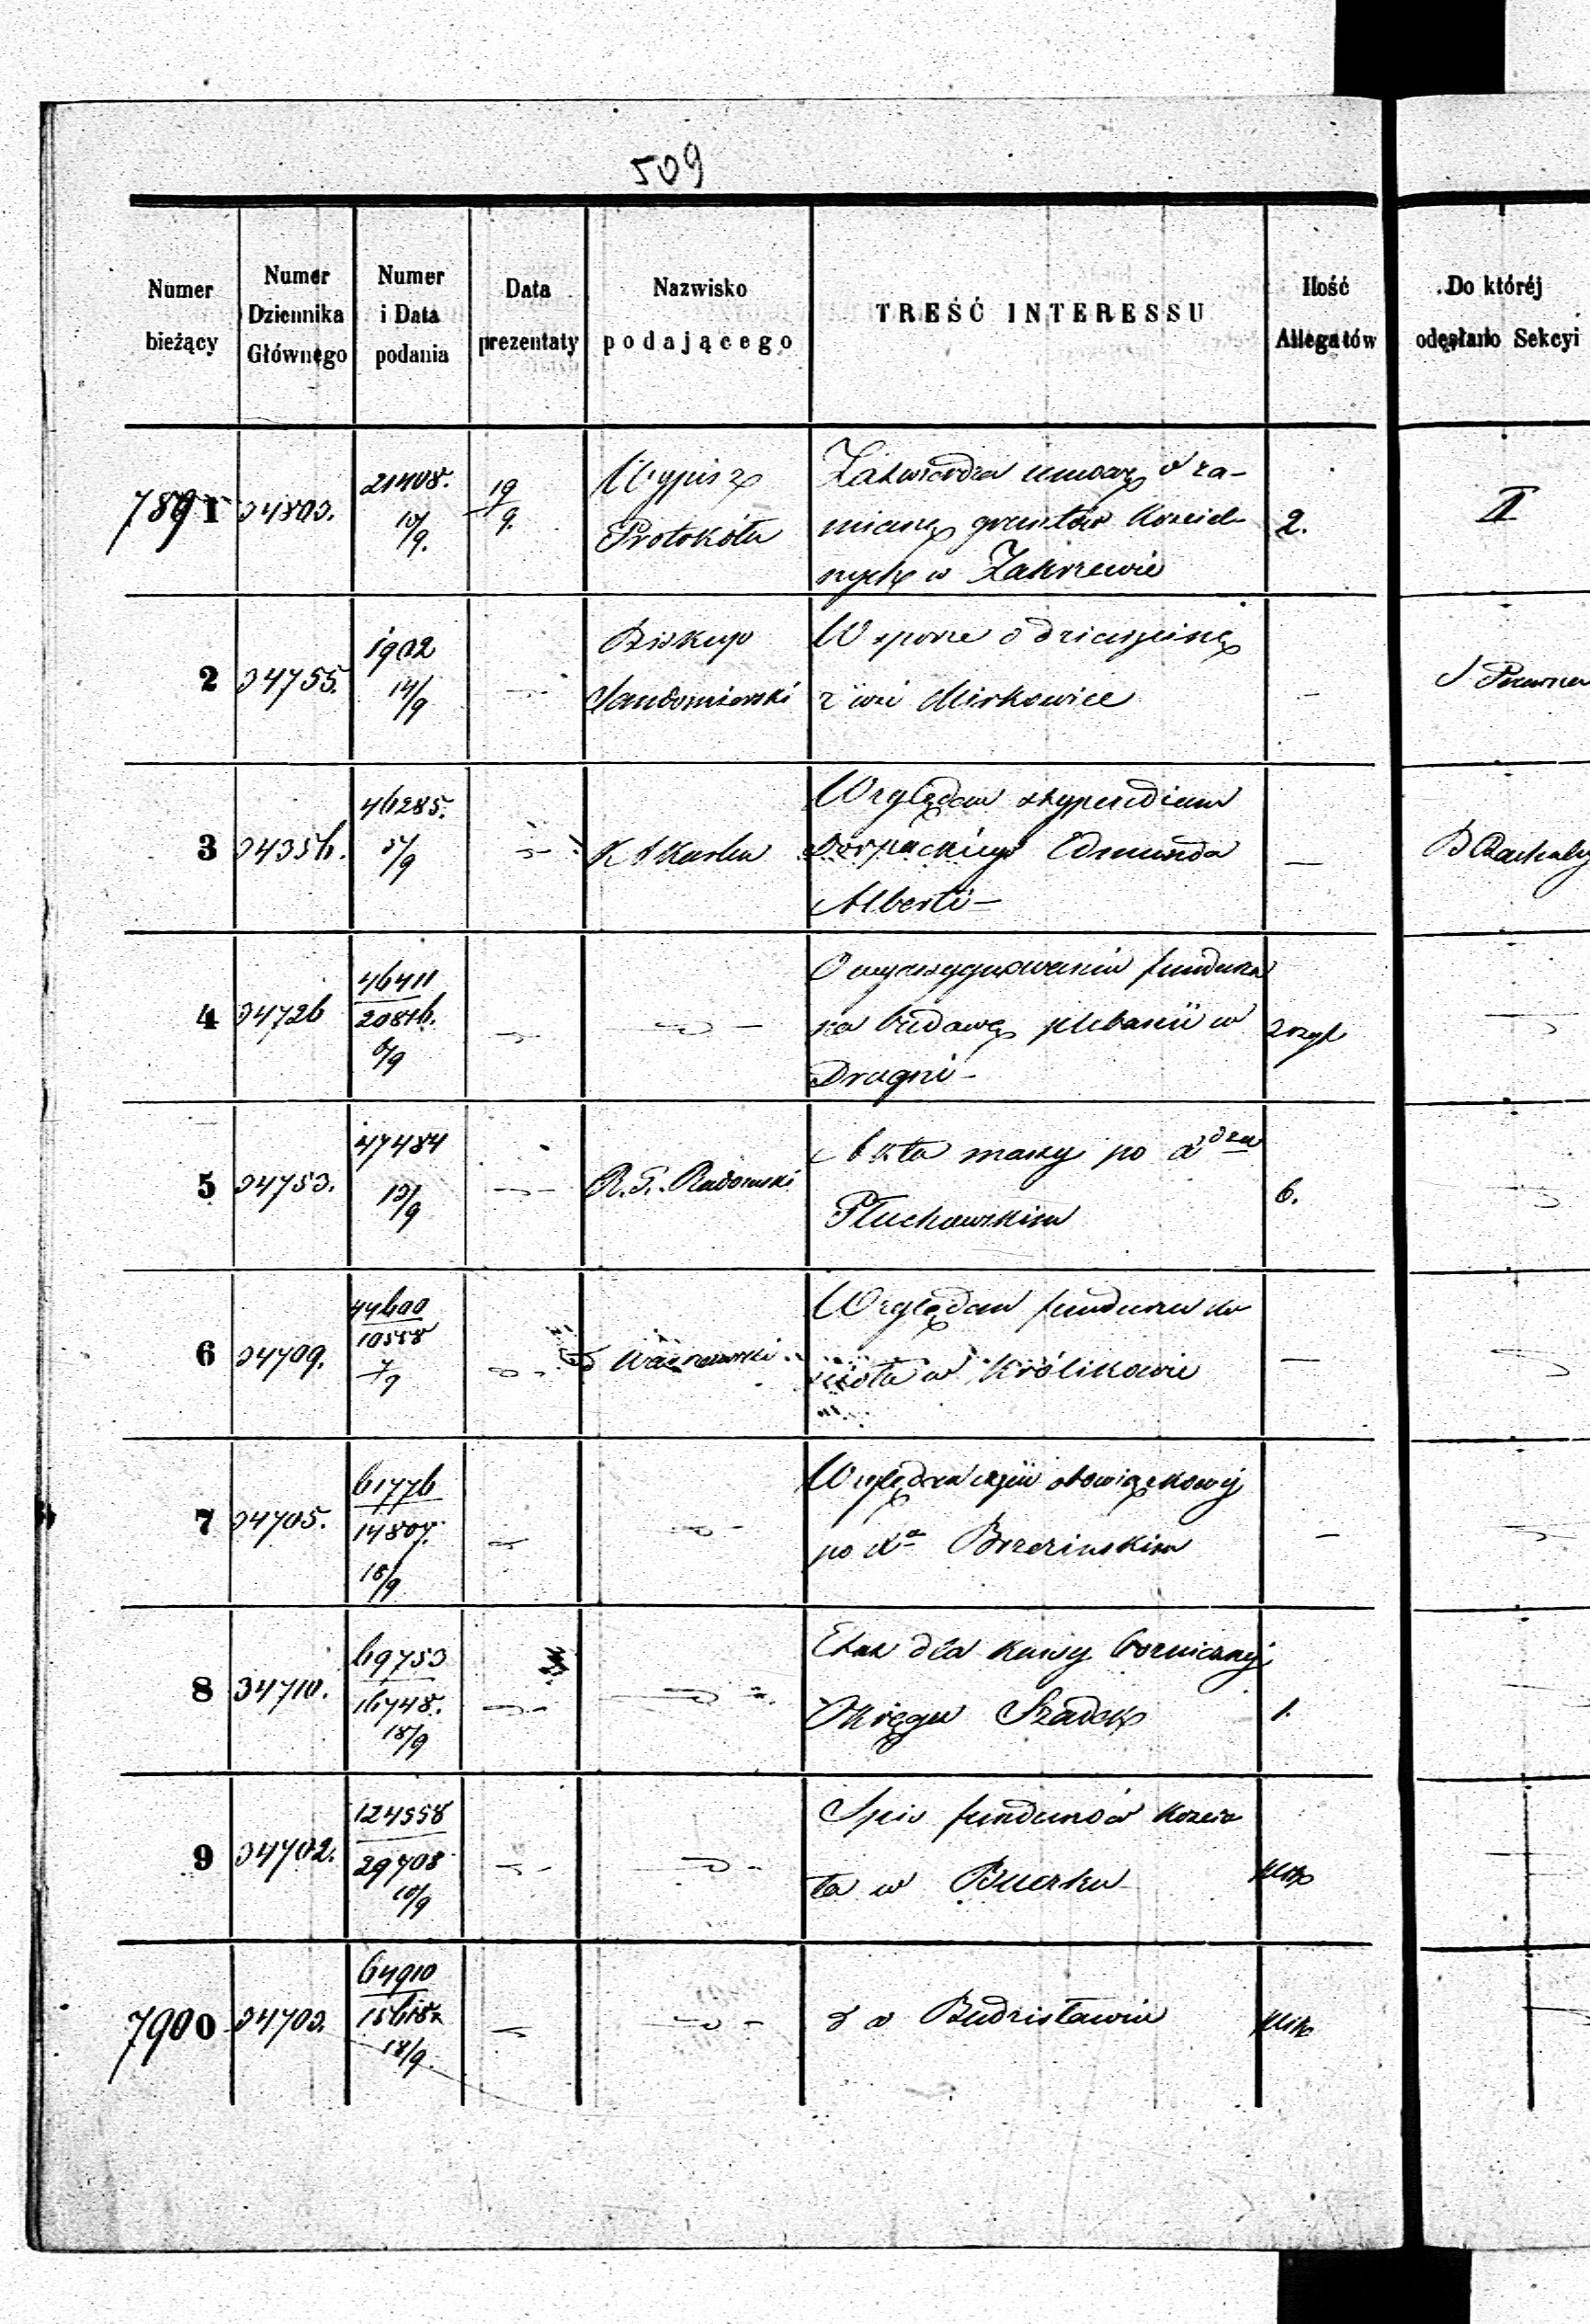 509
Numer bieżący
Numer Dziennika Głównego
Numer i Data podania
Data prezentaty
Nazwisko podającego
TREŚĆ INTERESSU
Ilość Allegatów
Do któréj odesłano Sekcyi
7891 34803. 21408. 10/9. 19/9. Wypis z Protokółu
Zatwierdza umowę o za-
mianę gruntów Kościel-
nych w Zakrzewie
2.
II
2 34755. 1902 14/9 Biskup Sandomierski
W sporze o dziesięcinę
z wsi Mirkowice
3 34356. 46285. 5/9
Względem stypendium
Dorpackiego Edmunda
Alberti
4 34726 46411 20816. 6/9
O wyassygnowaniu fundusza
na budowę plebanii w
Drugni
5 34753. 47484 13/9 R. G. Radomski
Akta massy po
Płuchowskim
6.
6 34709. 44600 10558 7/9 Warszawski
Względem funduszu ko
ścioła w Królikowie
7 34705. 61776 14807. 18/9
obowiązkowej
po Xa Brzezinskim
8 34710. 69753 16748. 18/9
Etat dla kassy bozniczej
Okręgu Szadek
1.
9 34702. 124558 29708 18/9
Spis funduszów kościo
ła w Buczku
7900 34703. 64910 18/9
d o Budzisławiu